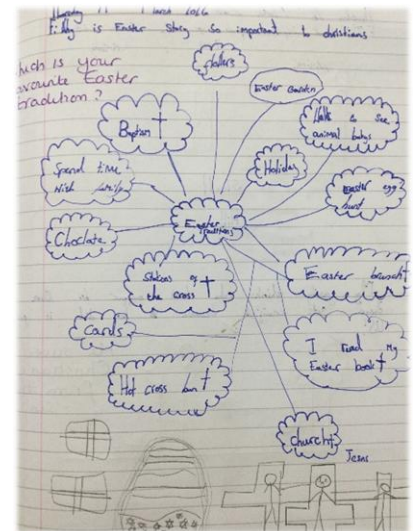 Thursday 11 March
Why is Easter Story so important to christians
Which is your
favourite Easter
tradition?
flowers
Easter Garden
Baptism
Walk to See
animal babys
Holiday
Spend time
with family
Easter egg
hunt
Easter
traditions
Choclate
Stations of
the cross
Easter brunch
cards
I read My
Easter book
Hot cross bun
church
Jesus